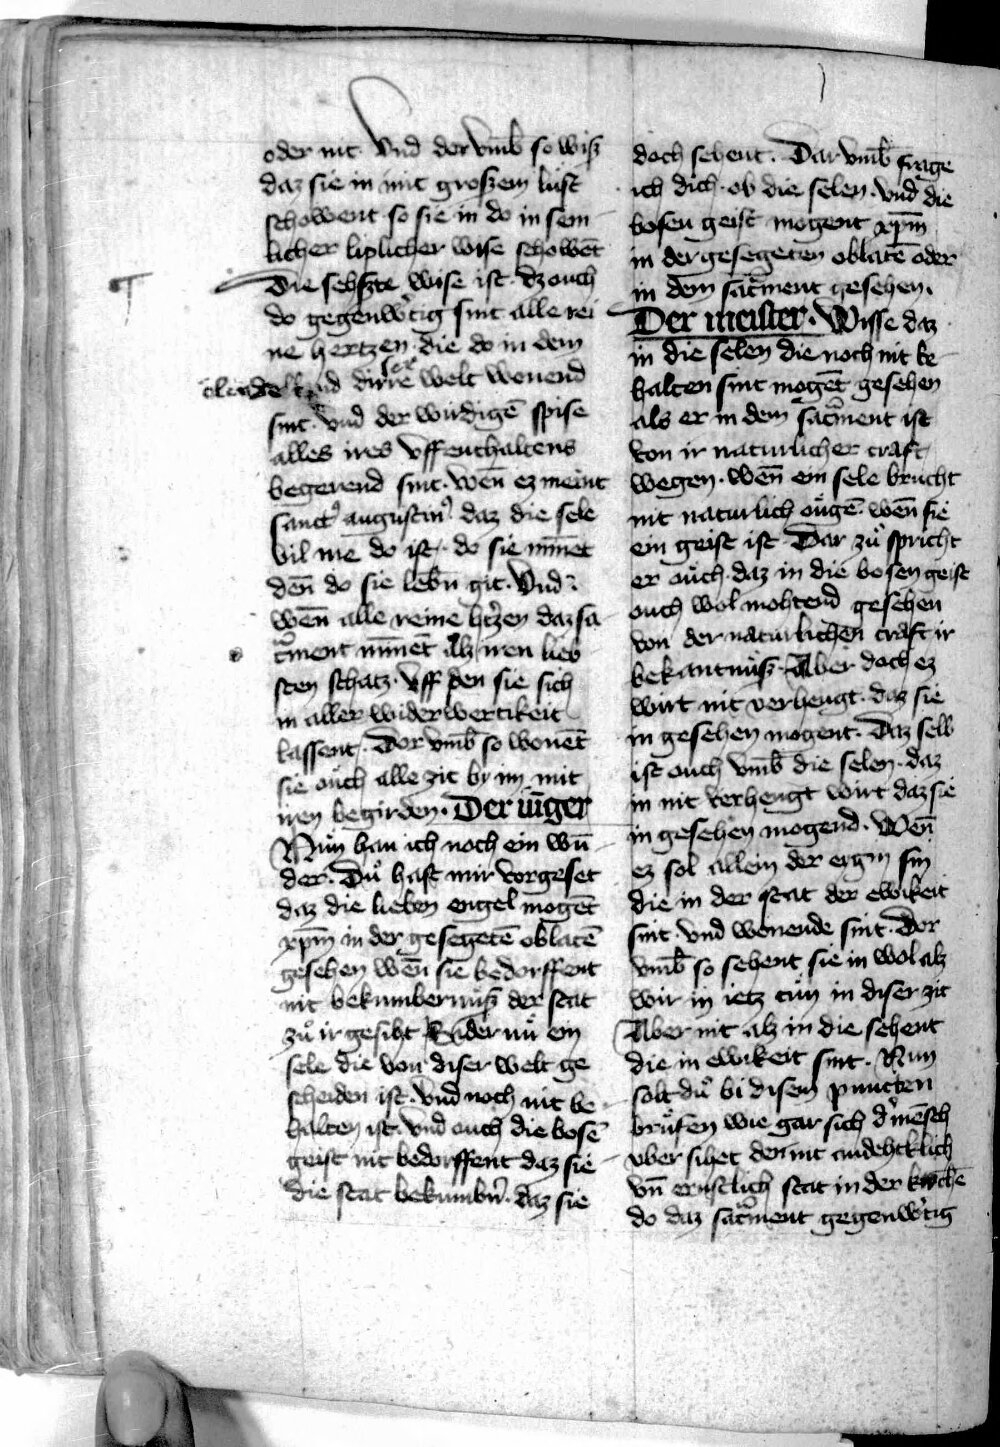 oder nit. Vnd dor vmb so wisz
daz sie in mit groszem lust
schowent so sie in do in sem
licher liplicher wise schowet
Die sehszte wise ist. dz ouch
do gegenwtig sint alle rei
ne hertzen. die do in dem
ellend dirre welt wonend
sint. vnd der wirdigē spise
alles ires vffenthaltens
begerend sint. wēn ez meint
sanct augustin daz die sele
vil me do ist. do sie minnet
den do sie lebn git. Vnd
wēn alle reine htzen daz sa
cment minnēt alz iren lieb
sten schatz. vff den sie sich
in aller widerwertikeit
lassent. Dor vmb so wonēt
sie ouch alle zit by im mit
iren begirden. Der iūger
Nun han ich noch ein wū
der. Dů hast mir vorgeset
daz die lieben engel mogēt
xpm in der gesegetē oblatē
gesehen wēn sie bedorffent
nit bekumbernusz der stat
zů ir gesiht. Sider nů ein
sele die von diser welt ge
scheiden ist. vnd noch nit be
halten ist. vnd ouch die bosē
geist nit bedorffent daz sie
die stat bekumbn. daz sie
doch sehent. Dar vmb frage
ich dich. ob die selen. vnd die
bosen geist mogent xpm
in der gesegeten oblatē oder
in dem sacment gesehen.
Der meister. Wisse daz
in die selen die noch nit be
halten sint mogēt gesehen
als er in dem sacment ist
von ir naturlicher craft
wegen. wēn ein sele brucht
nit naturlich ougē. wēn sie
ein geist ist. Dar zů spricht
er ouch. daz in die bosen geist
ouch wol mohtend gesehen
von der naturlichen craft ir
bekantnusz. Aber doch ez
wirt nit verhengt. daz sie
in gesehen mogent. Daz selb
ist ouch vmb die selen. daz
in nit verhengt wirt daz sie
in gesehen mogend. Wēn
ez sol allein der eign sin
die in der stat der ewikeit
sint. vnd wonende sint. Dor
vmb so sehent sie in wol alz
wir in ietz tůn in diser zit
Aber nit alz in die sehent
die in ewikeit sint. Nun
solt dů bi disem puncten
brůfen wie gar sich d mensch
vber sihet der nit andehtklich
vn ernstlich stat in der kirchē
do daz sacment gegenwtig